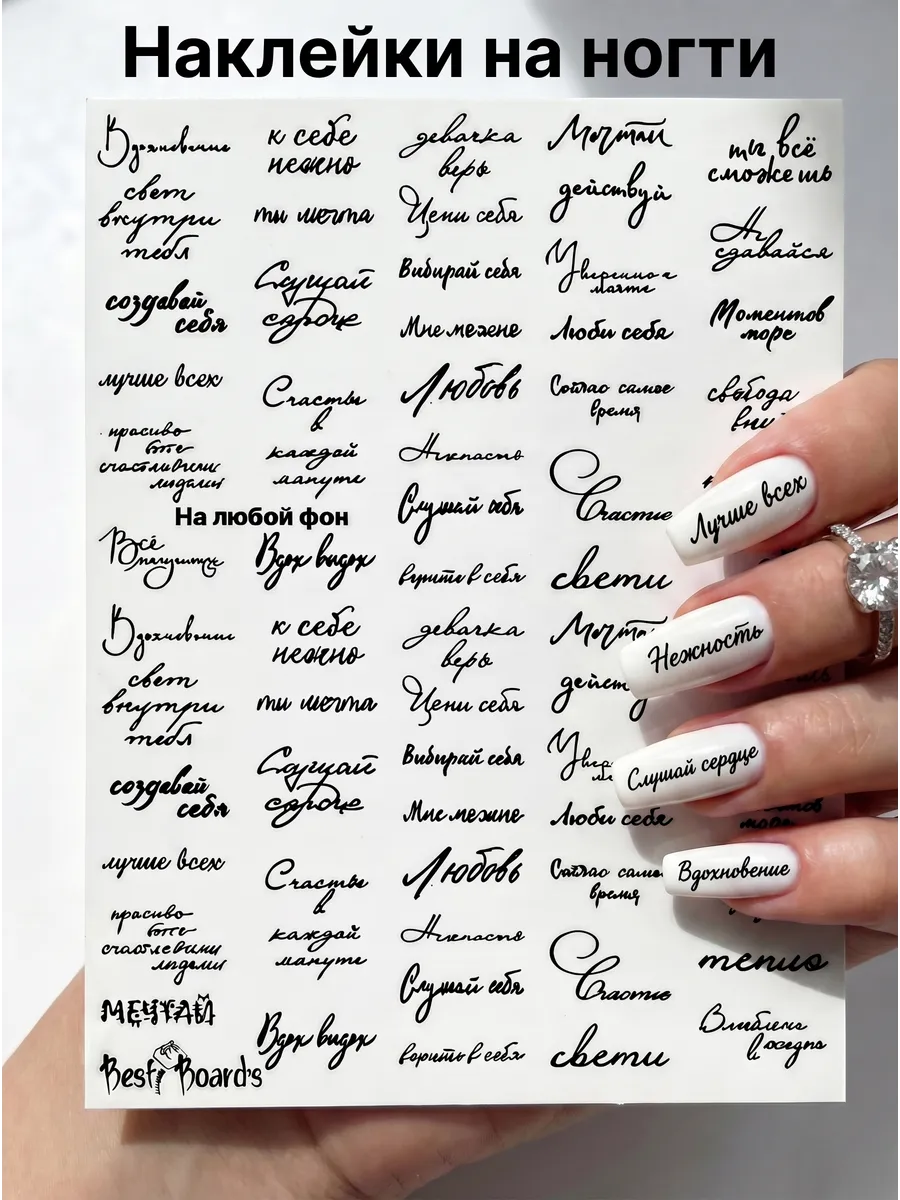 Наклейки на ногти
Вдохновение
свет
внутри
тебя
создавай
себя
лучше всех
красиво
счастливыми
людьми
На любой фон
Всё
к себе
нежно
ты мечта
Слушай
сердце
Счастье
в
каждой
минуте
Вдох выдох
девочка
верь
Цени себя
Выбирай себя
Мне можно
Любовь
Нежность
Слушай себя
верить в себя
Мечтай
действуй
Уверенно к
мечте
Люби себя
самое
время
Счастье
свети
ты всё
сможешь
Не
сдавайся
Моментов
море
свобода
Лучше всех
Нежность
Слушай сердце
Вдохновение
Вдохновение
свет
внутри
тебя
создавай
себя
лучше всех
красиво
счастливыми
людьми
МЕЧТАЙ
Best Board's
к себе
нежно
ты мечта
Слушай
сердце
Счастье
в
каждой
минуте
Вдох выдох
девочка
верь
Цени себя
Выбирай себя
Мне можно
Любовь
Нежность
Слушай себя
верить в себя
Люби себя
время
Счастье
свети
тепло
Влюблена